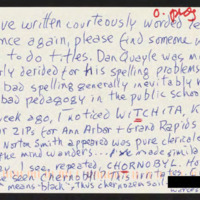 O.
ve written courteously worded le
nce again, please find someone,
to do titles. Dan Quayle was mi
ly derided for his spelling problems
bad spelling generally inevitably
bad pedagogy in the public schoo
week ago, I noticed WITCHITA, K
ur ZIPs for Ann Arbor + Grand Rapids
Norton Smith appeared was pure chrical
the mind wanders... I've made simila
y, I see, repeated, CHORNOBYL. Ho
ve seen Chernobyl! This irritates
means "black", thus chernozem soil